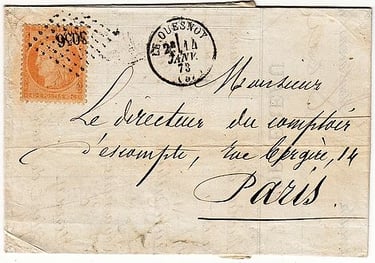 LE QUESNOY
2E 14
JANV.
73
(57)
Monsieur
Le directeur du comptoir
d'escompte, Rue Bergère, 14
Paris.